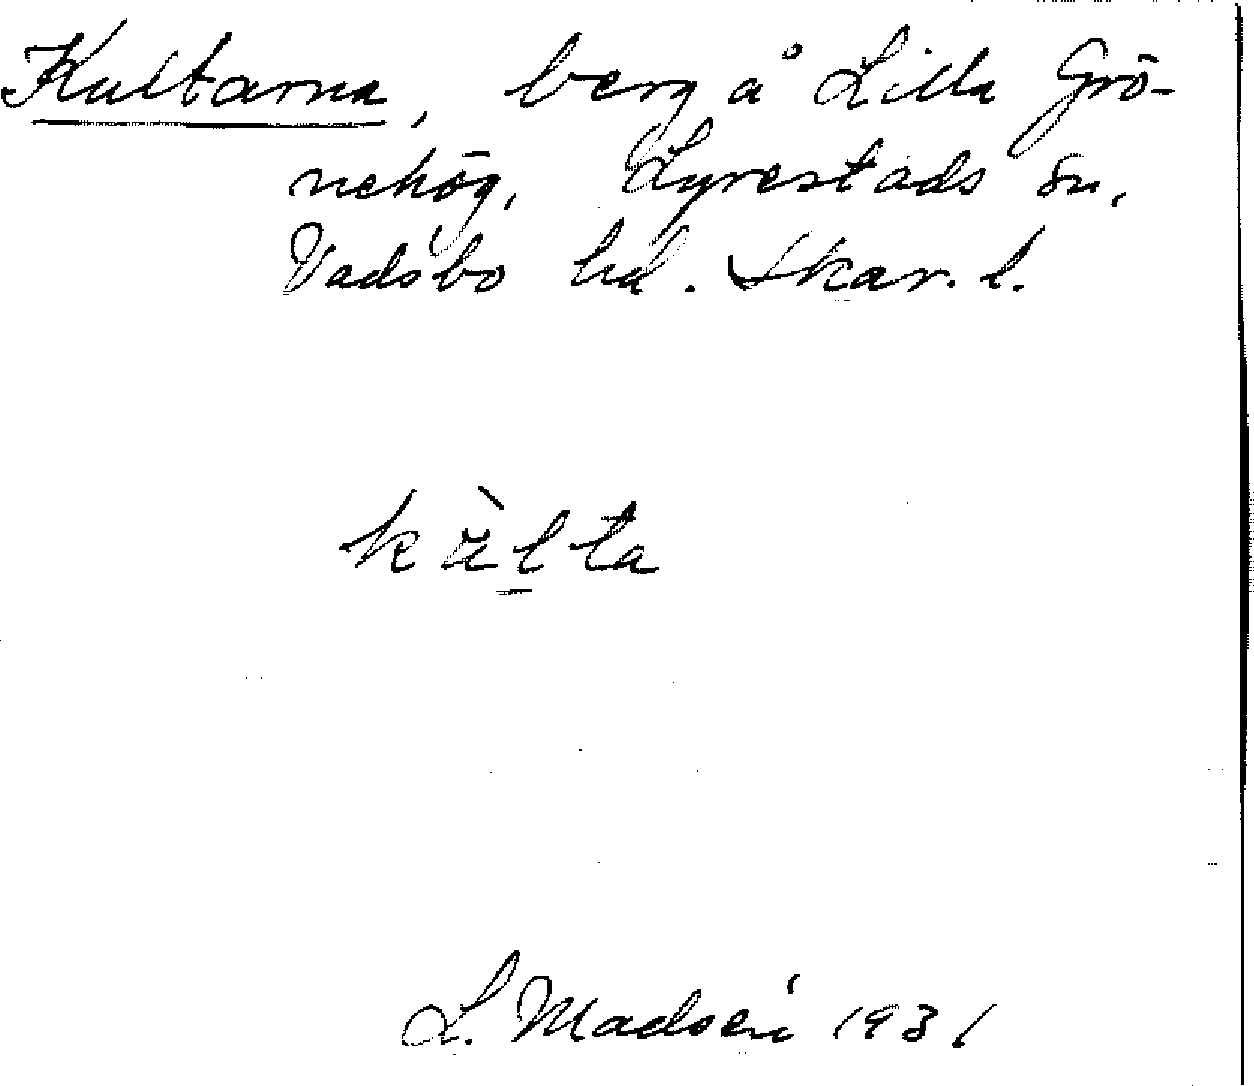 Kultarna, berg å Lilla Grö-
nehög, Lyrestads sn,
Vadsbo hd. Skar. l.
L. Madsén 1931